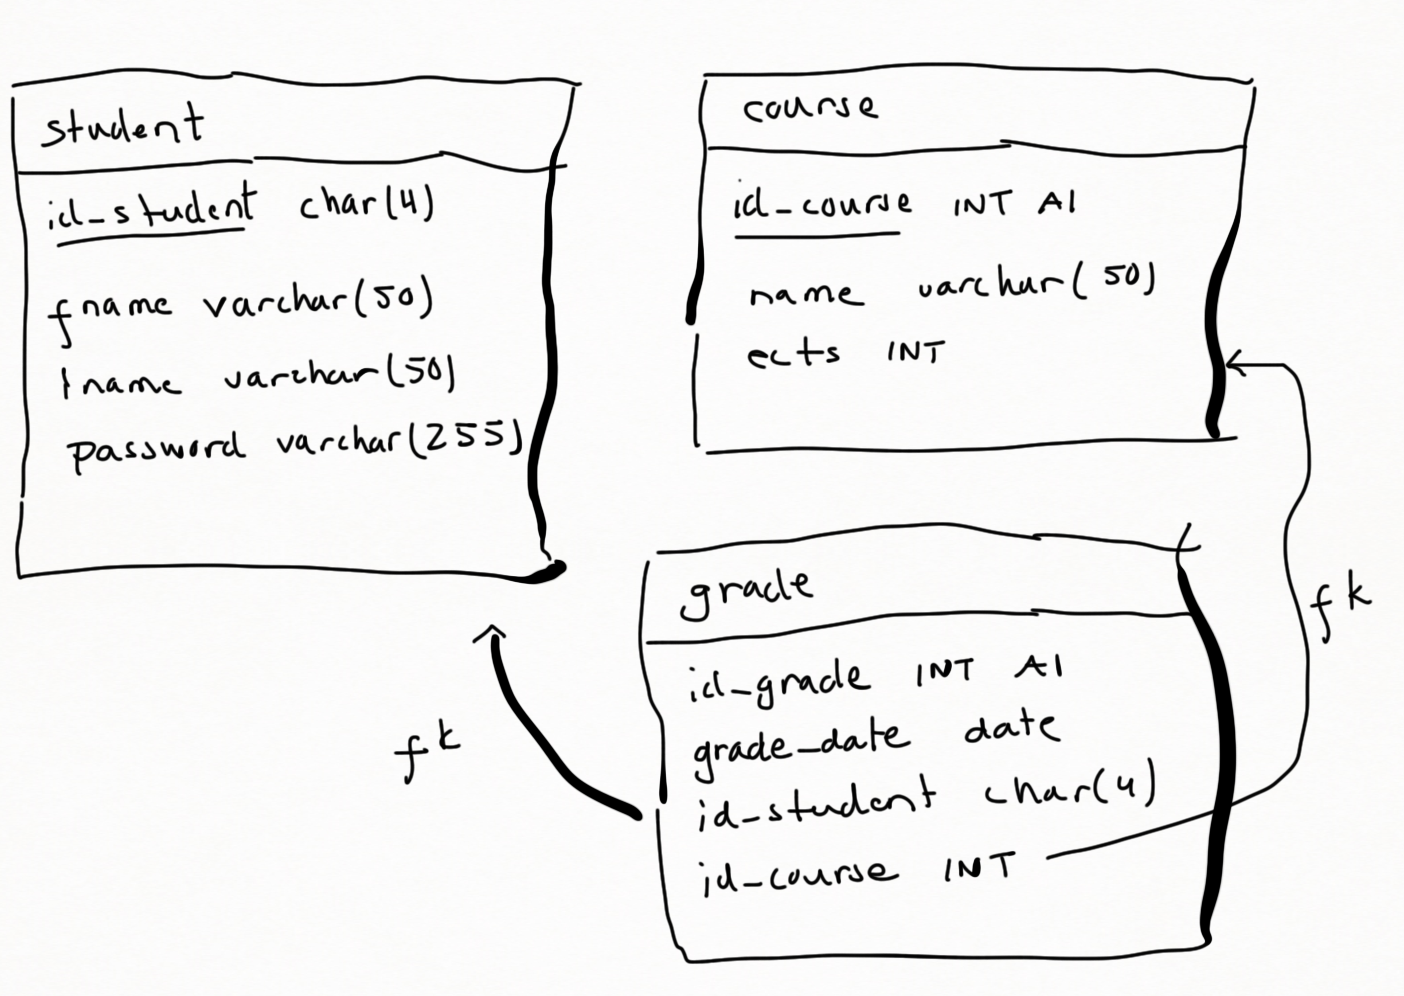 student
id_student char(4)
fname varchar(50)
lname varchar(50)
password varchar(255)
course
id_course INT AI
name varchar(50)
ects INT
grade
id_grade INT AI
grade_date date
id_student char(4)
id_course INT
fk
fk